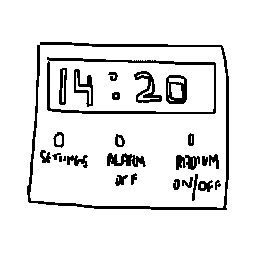 14:20
SETTINGS ALARM RADIUM
OFF ON/OFF